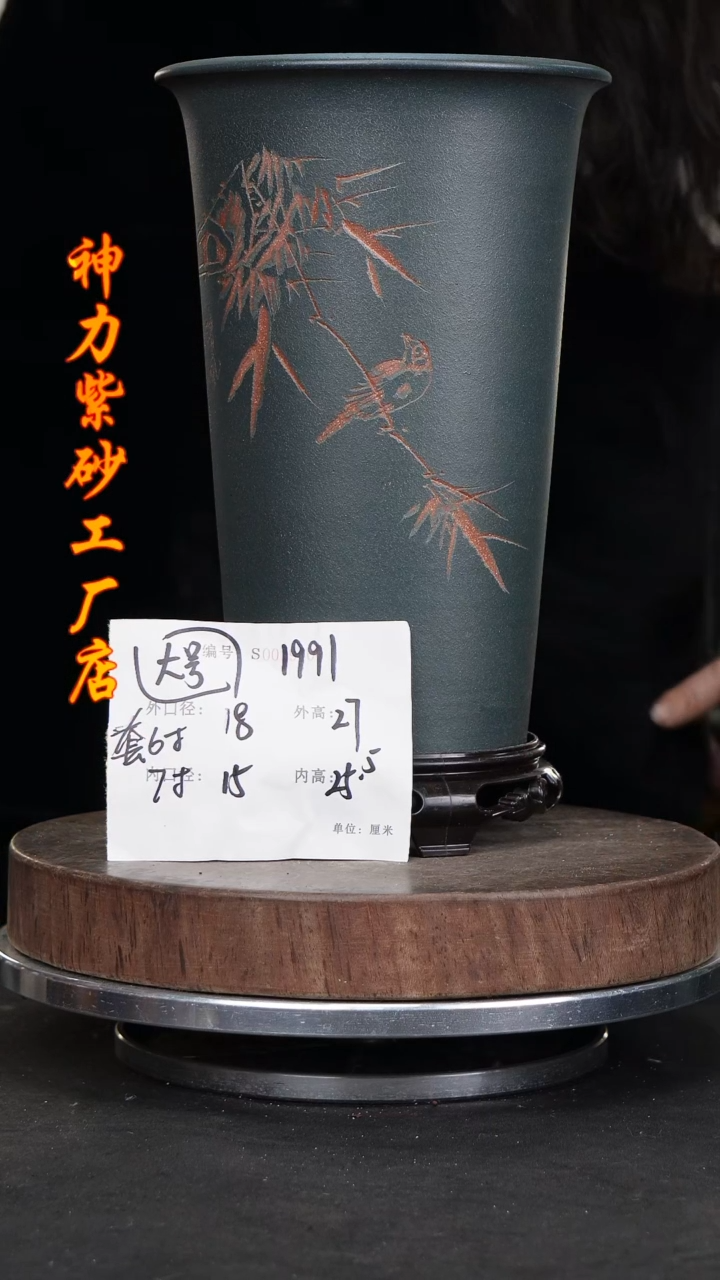 神力紫砂工厂店
大号 编号: S00 1991
外口径: 18 外高: 27
套6寸
内口径: 15 内高: 25.5
7寸
单位: 厘米